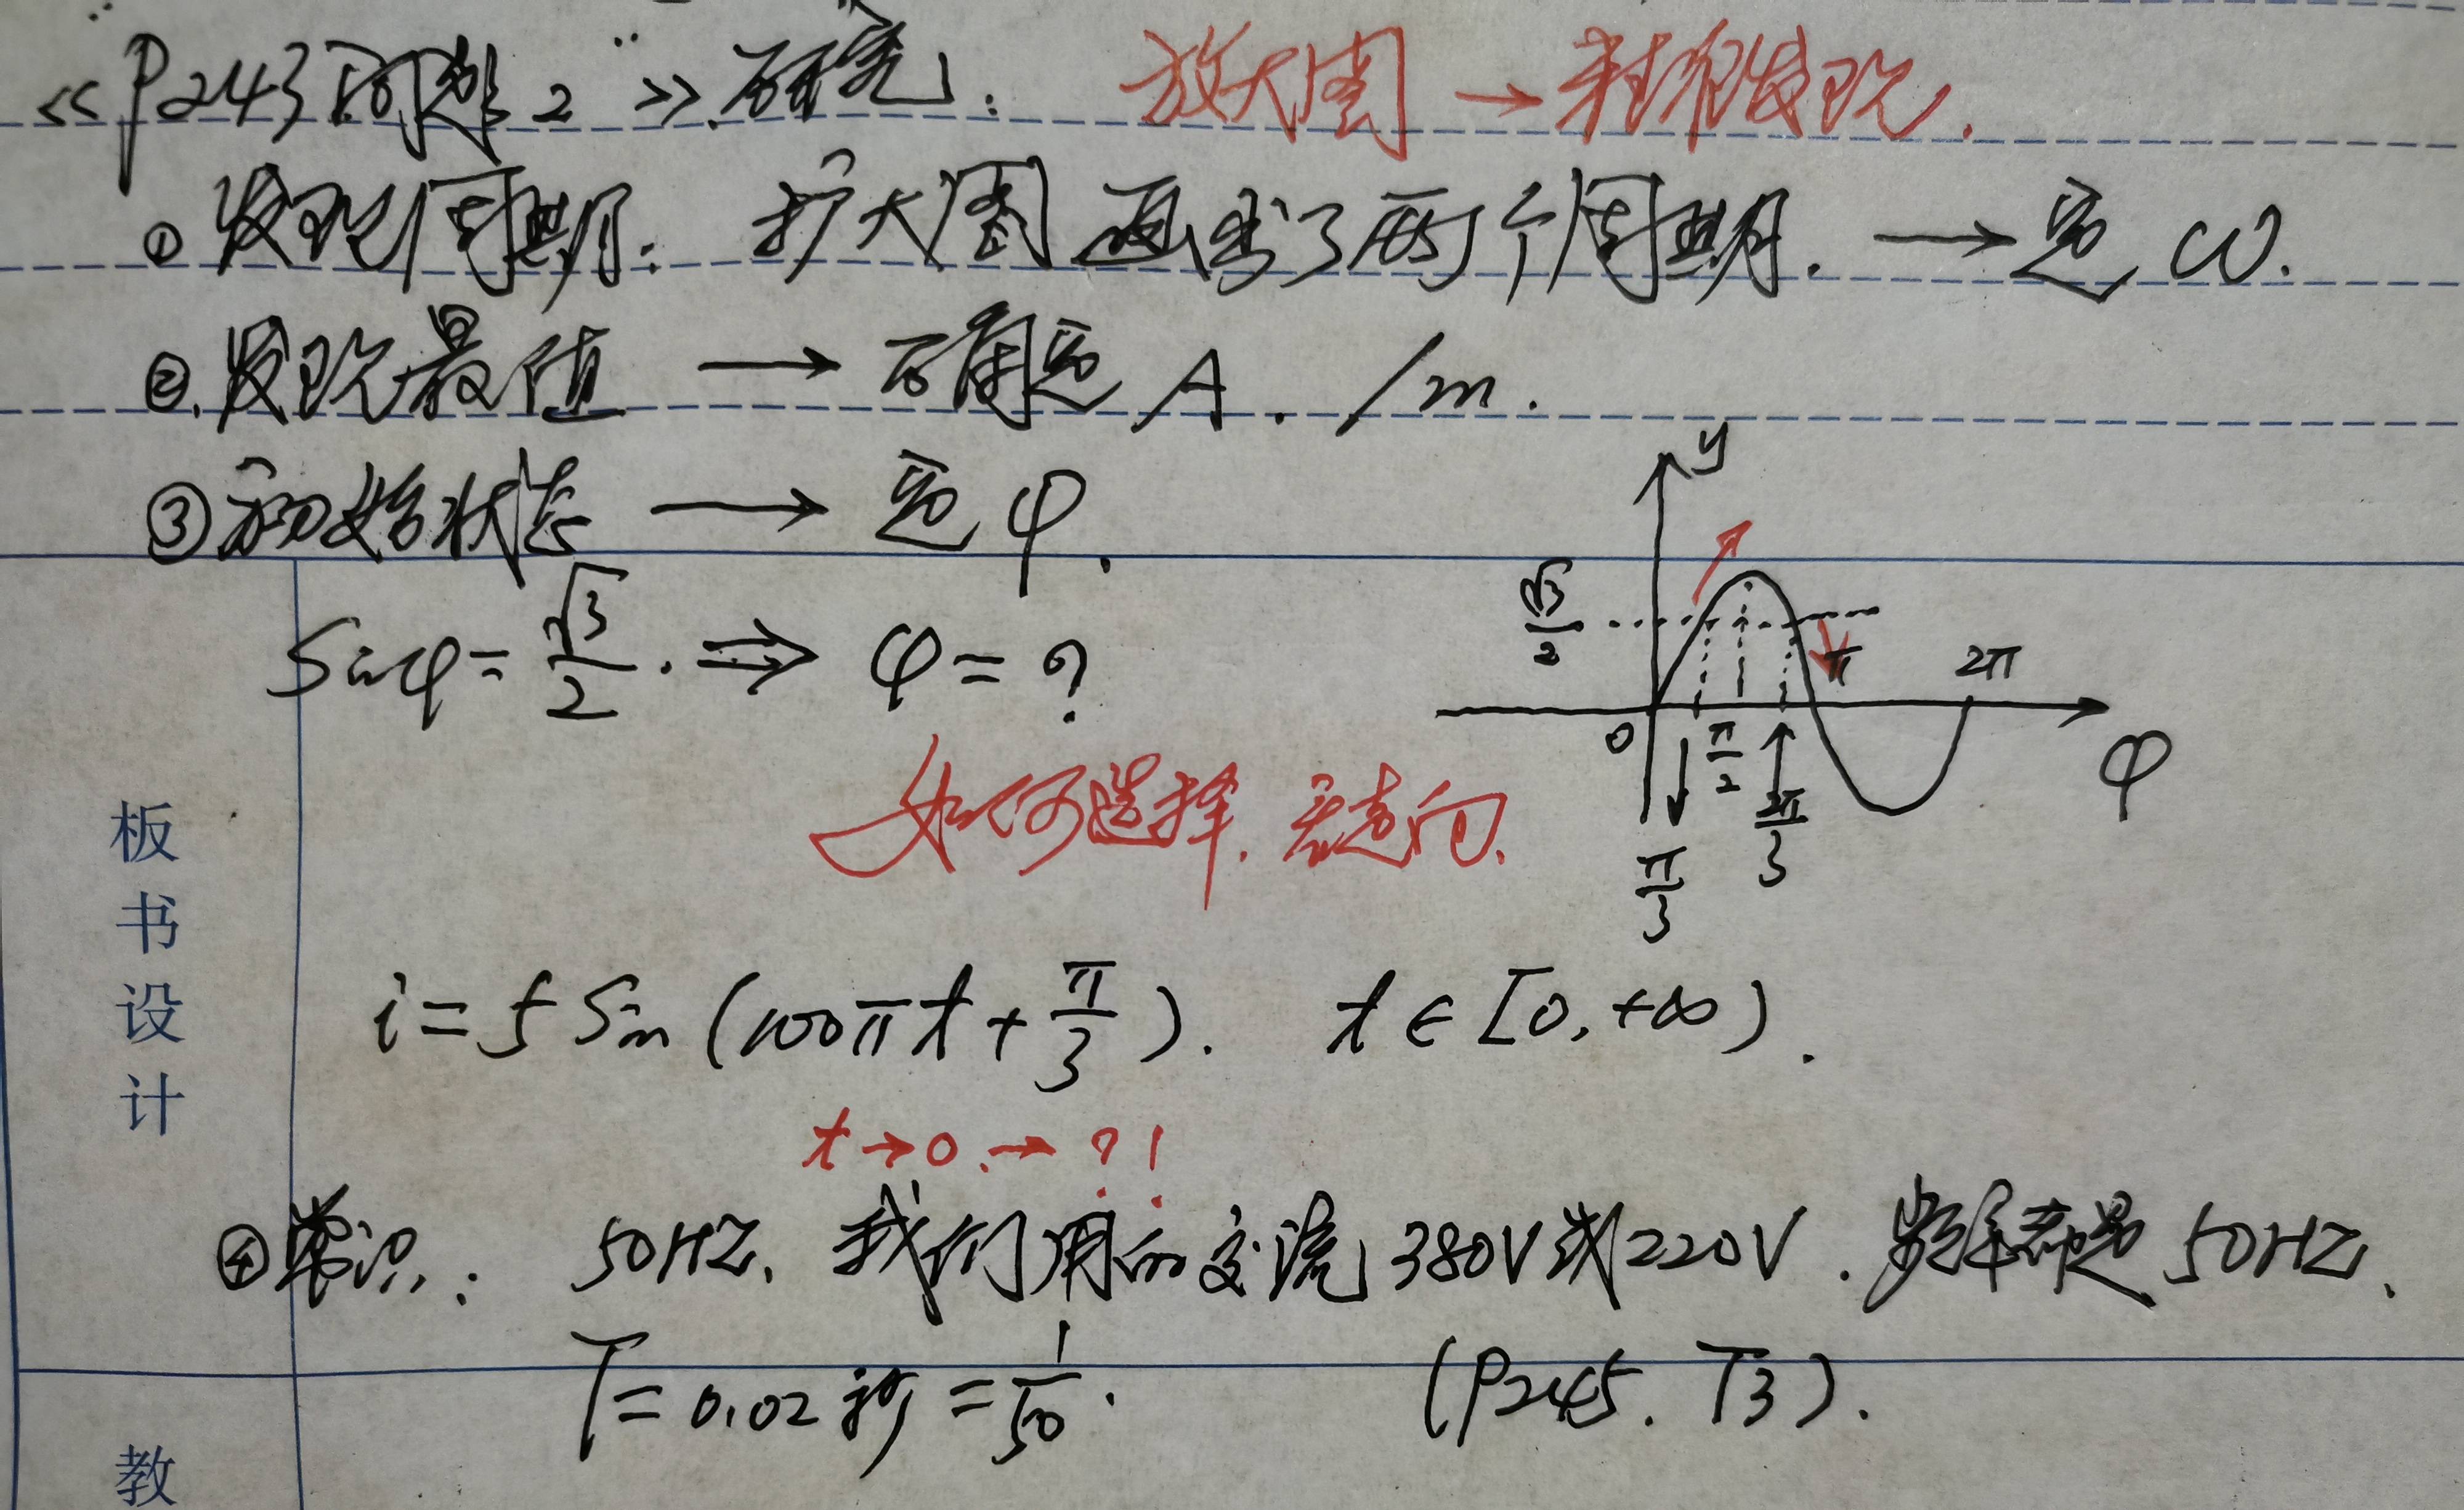 《P243问题2》研究: 放大图→精彩发现.
①发现周期: 扩大图画出了两个周期. →定ω.
②.发现最值→确定A. /m.
③初始状态→定φ.
Sinφ=√3/2. ⇒ φ=?
y
√3/2
π
2π
0
π/2
φ
2π/3
π/3
如何选择. 看走向.
i=5Sin(100πt+π/3). t∈[0,+∞).
t→0.→?!
④常识: 50HZ. 我们用的交流380V或220V. 频率都是50HZ.
T=0.02秒=1/50. (P245. T3).
板书设计
教